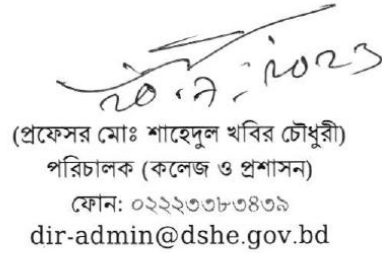 ২০.৭.২০২৩
(প্রফেসর মোঃ শাহেদুল খবির চৌধুরী)
পরিচালক (কলেজ ও প্রশাসন)
ফোন: ০২২২৩৩৮৩৪৩৯
dir-admin@dshe.gov.bd